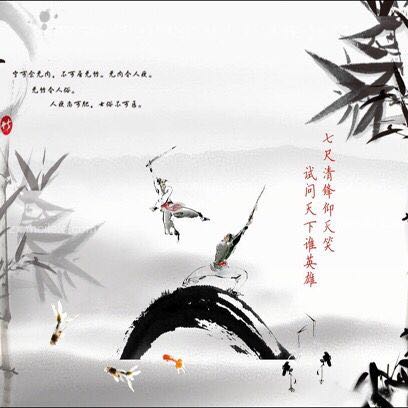 宁可食无肉，不可居无竹。无肉令人瘦。
无竹令人俗。
人瘦尚可肥，士俗不可医。
竹
七尺清锋仰天笑
试问天下谁英雄